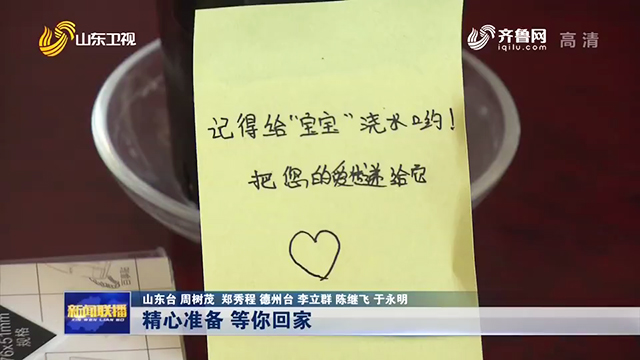 山东卫视
齐鲁网
iqilu.com
高清
记得给"宝宝"浇水哟！
把您的爱传递给它
76x51mm
规格
新闻联播
山东台 周树茂 郑秀程 德州台 李立群 陈继飞 于永明
精心准备 等你回家